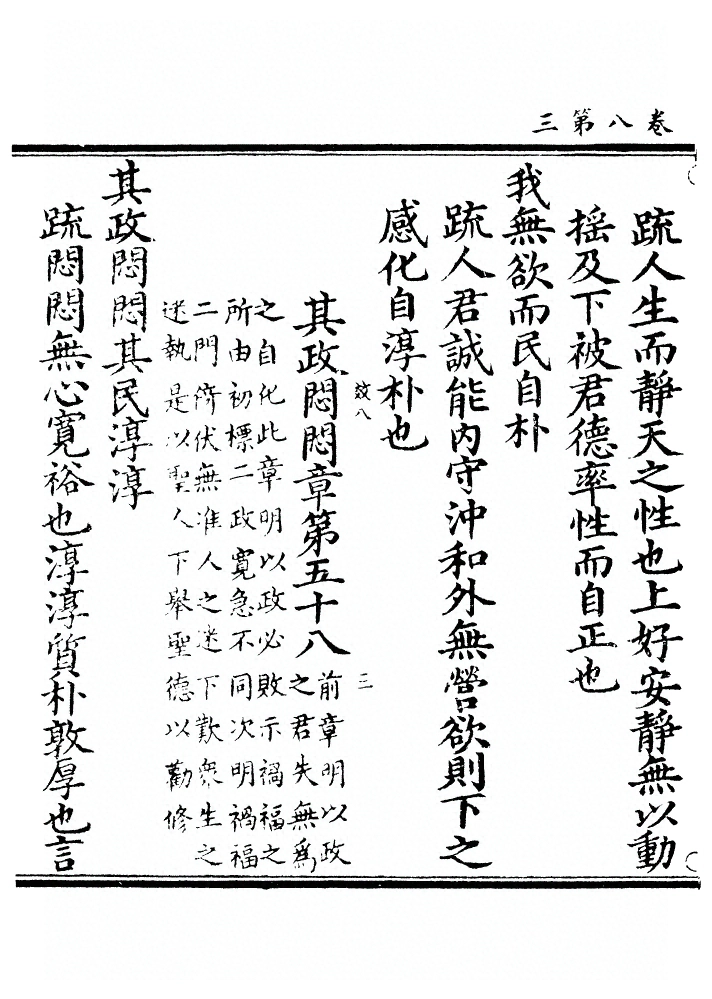 卷八第三
疏人生而靜天之性也上好安靜無以動
搖及下被君德率性而自正也
我無欲而民自朴
疏人君誠能内守沖和外無營欲則下之
感化自淳朴也
效八 三
其政悶悶章第五十八
前章明以政
之君失無為
之自化此章明以政必敗示禍福之
所由初標二政寬急不同次明禍福
二門倚伏無准人之迷下歎衆生之
迷執是以聖人下舉聖德以勸修
其政悶悶其民淳淳
疏悶悶無心寬裕也淳淳質朴敦厚也言